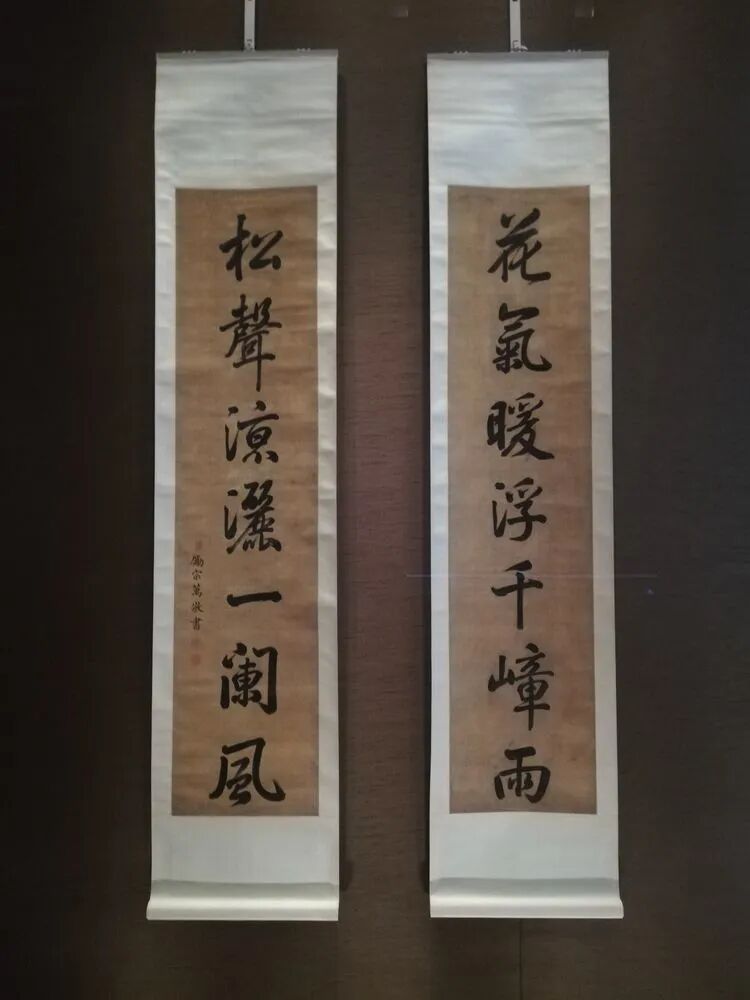 花氣暖浮千嶂雨
松聲涼灑一闌風
勵宗萬敬書